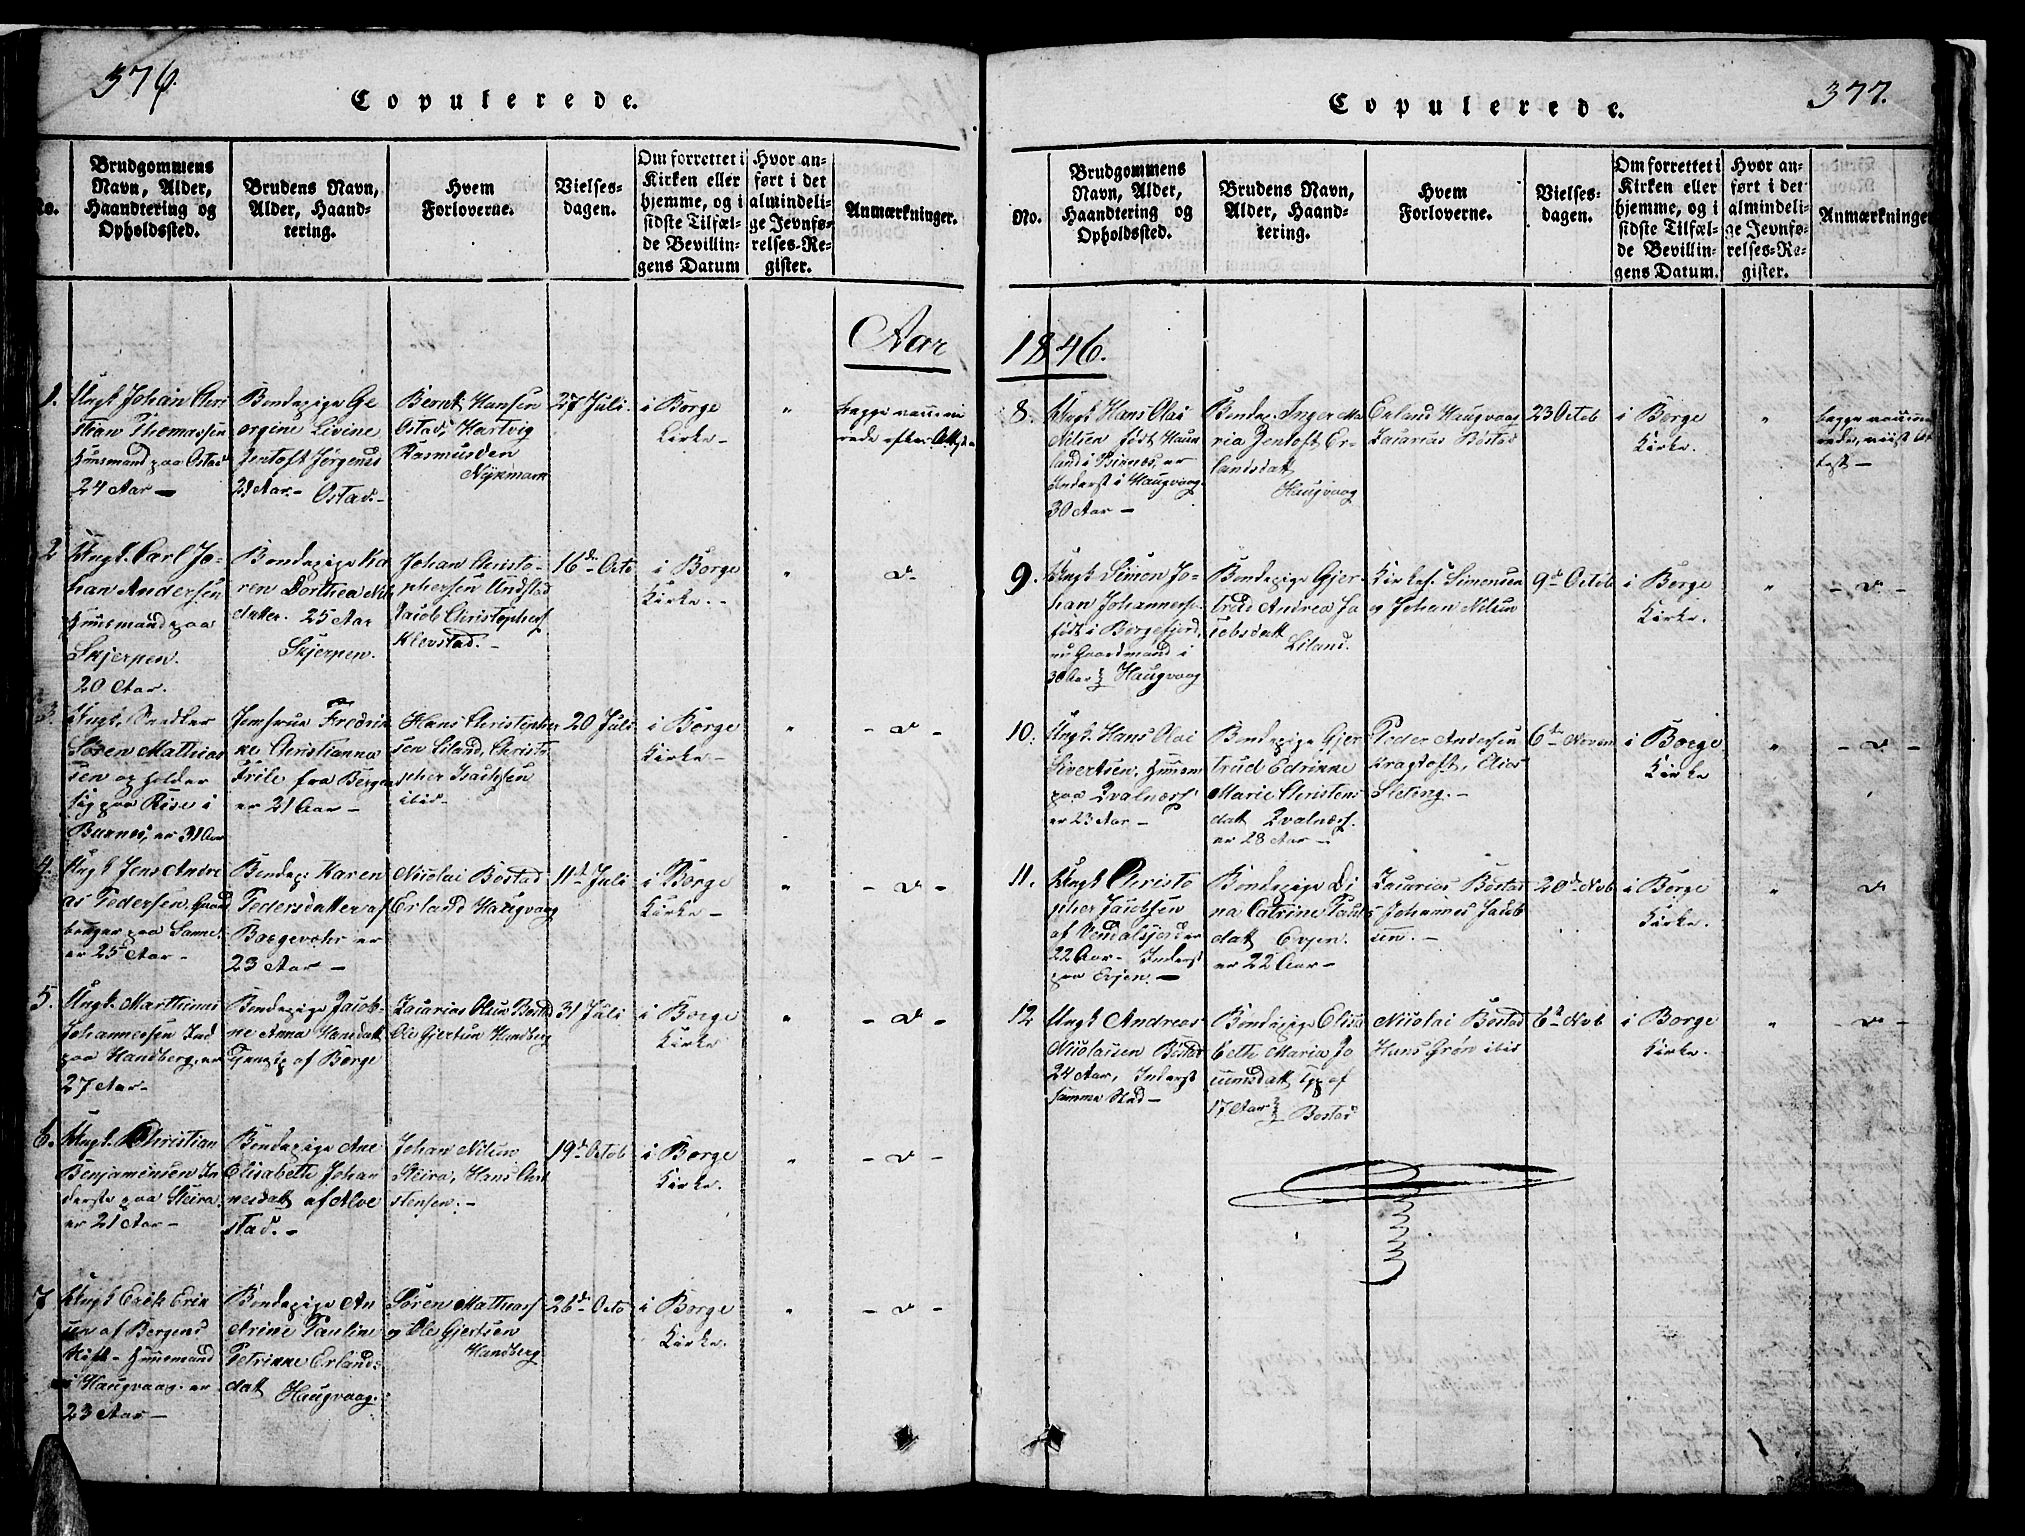 376.
Copulerede.
No.
Brudgommens
Navn, Alder,
Haandtering og
Opholdssted.
Brudens Navn,
Alder, Haand-
tering.
Hvem
Forloverne.
Vielses-
dagen.
Om forrettet i
Kirken eller
hjemme, og i
sidste Tilfæl-
de Bevillin-
gens Datum
Hvor an-
ført i det
almindeli-
ge Jevnfø-
relses-Re-
gister.
Anmærkninger.
Aar
1.
Ungk Johan Chri
stian Thomassen
Huusmand paa Ostad
24 Aar —
Bondepige Ge
orgine Livine
Jentoft Jørgensd
21 Aar. – Ostad. –
Bernt Hansen
Ostad, Hartvig
Rasmussen
Nykmark
27 Juli.
i Borge
Kirke –
"
begge vaccine
rede efter Attest
2
Ungk. Carl Jo-
han Andersen
Huusmand paa
Skjerpen.
20 Aar.
Bondepige Ka
ren Dorthea Nils
datter. 25 Aar
Skjerpen.
Johan Christo-
phersen Undstad
Jacob Christophers
Klevstad. –
16de Octo
i Borge
Kirke. –
"
– v –
3.
Ungk. Snedker
Søren Mathias
sen og holder
sig paa Rise i
Buxnes, er 31 Aar
Jomfrue Fredrik
ke Christianna
Frile fra Bergen
er 21 Aar –
Hans Christopher
sen Liland, Christo
pher Isachsen
ibid. –
20 Juli
i Borge
Kirke –
"
– v –
4.
Ungk Jens Andre
as Pedersen, Gaard
bruger paa Sanne.
er 25 Aar –
Bondep: Karen
Pedersdatter af
Borgevær er
23 Aar –
Nicolai Bostad
Erland Haugvaag
11d Juli
i Borge
Kirke –
"
– v –
5.
Ungk. Marthinus
Johannessen Ind
paa Handberg, er
27 Aar –
Bondepige Jacob-
ne Anna Hansdatt
Tjenstp af Borge
Zacarias Olsen Bostd
Ole Gjertsen Handberg
31 Juli
i Borge
Kirke
"
– v –
6.
Ungk. Christian
Benjaminsen In
derste paa Steira.
er 21 Aar –
Bondepige Ane
Elisabeth Johan
nesdatt af Alve
stad. –
Johan Nilsen
Steira, Hans Chri
stensen. –
19d Octob
i Borge
Kirke.
"
– v –
7
Ungk Erik Erik
sen af Bergens
Stift – Huusmand
i Haugvaag. er
23 Aar –
Bondepige An
drine Pauline
Petrikke Erlands
datt Haugvaag.
Søren Mathiass
og Ole Gjertsen
Handberg
26d Octo
i Borge
Kirke.
"
– v –
377.
Copulerede.
No.
Brudgommens
Navn, Alder,
Haandtering og
Opholdssted.
Brudens Navn,
Alder, Haand-
tering.
Hvem
Forloverne.
Vielses-
dagen.
Om forrettet i
Kirken eller
hjemme, og i
sidste Tilfæl-
de Bevillin-
gens Datum.
Hvor an-
ført i det
almindeli-
ge Jevnfø-
relses-Re-
gister.
Anmærkninger
1846.
8.
Ungk Hans Olai
Nilsen født Haun
land i Buxnes, er
Inderst i Haugvaag
30 Aar –
Bondep. Inger Ma
ria Zentoft Er-
landsdatt
Haugvaag
Erland Haugvaag
Zacarias Bostad
23 Octob
i Borge
Kirke.
"
begge vaccine
rede,
9.
Ungk Simon Jo-
han Johannesse.
født i Borgefjord,
nu Gaardmand i
30 Aar Haugvaag
Bondepige Gjer
trud Andrea Ja
cobsdatt
Liland.
Simonsen
og Johan Nilsen
9d Octob
i Borge
Kirke.
"
– v –
10.
Ungk. Hans Olai
Sivertsen, Huusm
paa Qvalnæss
er 23 Aar –
Bondepige Gjer
trud Edrikke
Marie Christens
datt Qvalnæs.
er 28 Aar –
Peder Andersen
Kragtoft, Elias
Sleteng. –
6te Novem
i Borge
Kirke
"
– v –
11.
Ungk Christo
pher Jacobsen
af Vendalsjord er
22 Aar – Inderst
paa Evjen –
Bondepige Di
na Catrine Pauls
datt Evjen.
er 22 Aar –
Zacarias Bostad
Johannes Jacob
sen. –
20d Nvb
i Borge
Kirke.
"
v
12
Ungk Andreas
Nicolaisen Bostad
24 Aar, Inderst
samme Sted –
Bondepige Elisa
beth Maria Jo
cumsdatt Tjp af
17 Aar Bostad
Nicolai Bostad
Hans Grøn ibid
6te Nvb
i Borge
Kirke.
"
– v –